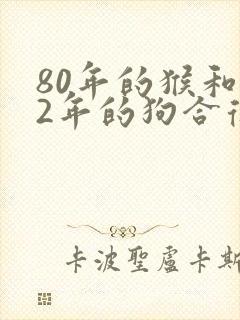 80年的猴和
2年的狗合
卡波聖盧卡斯